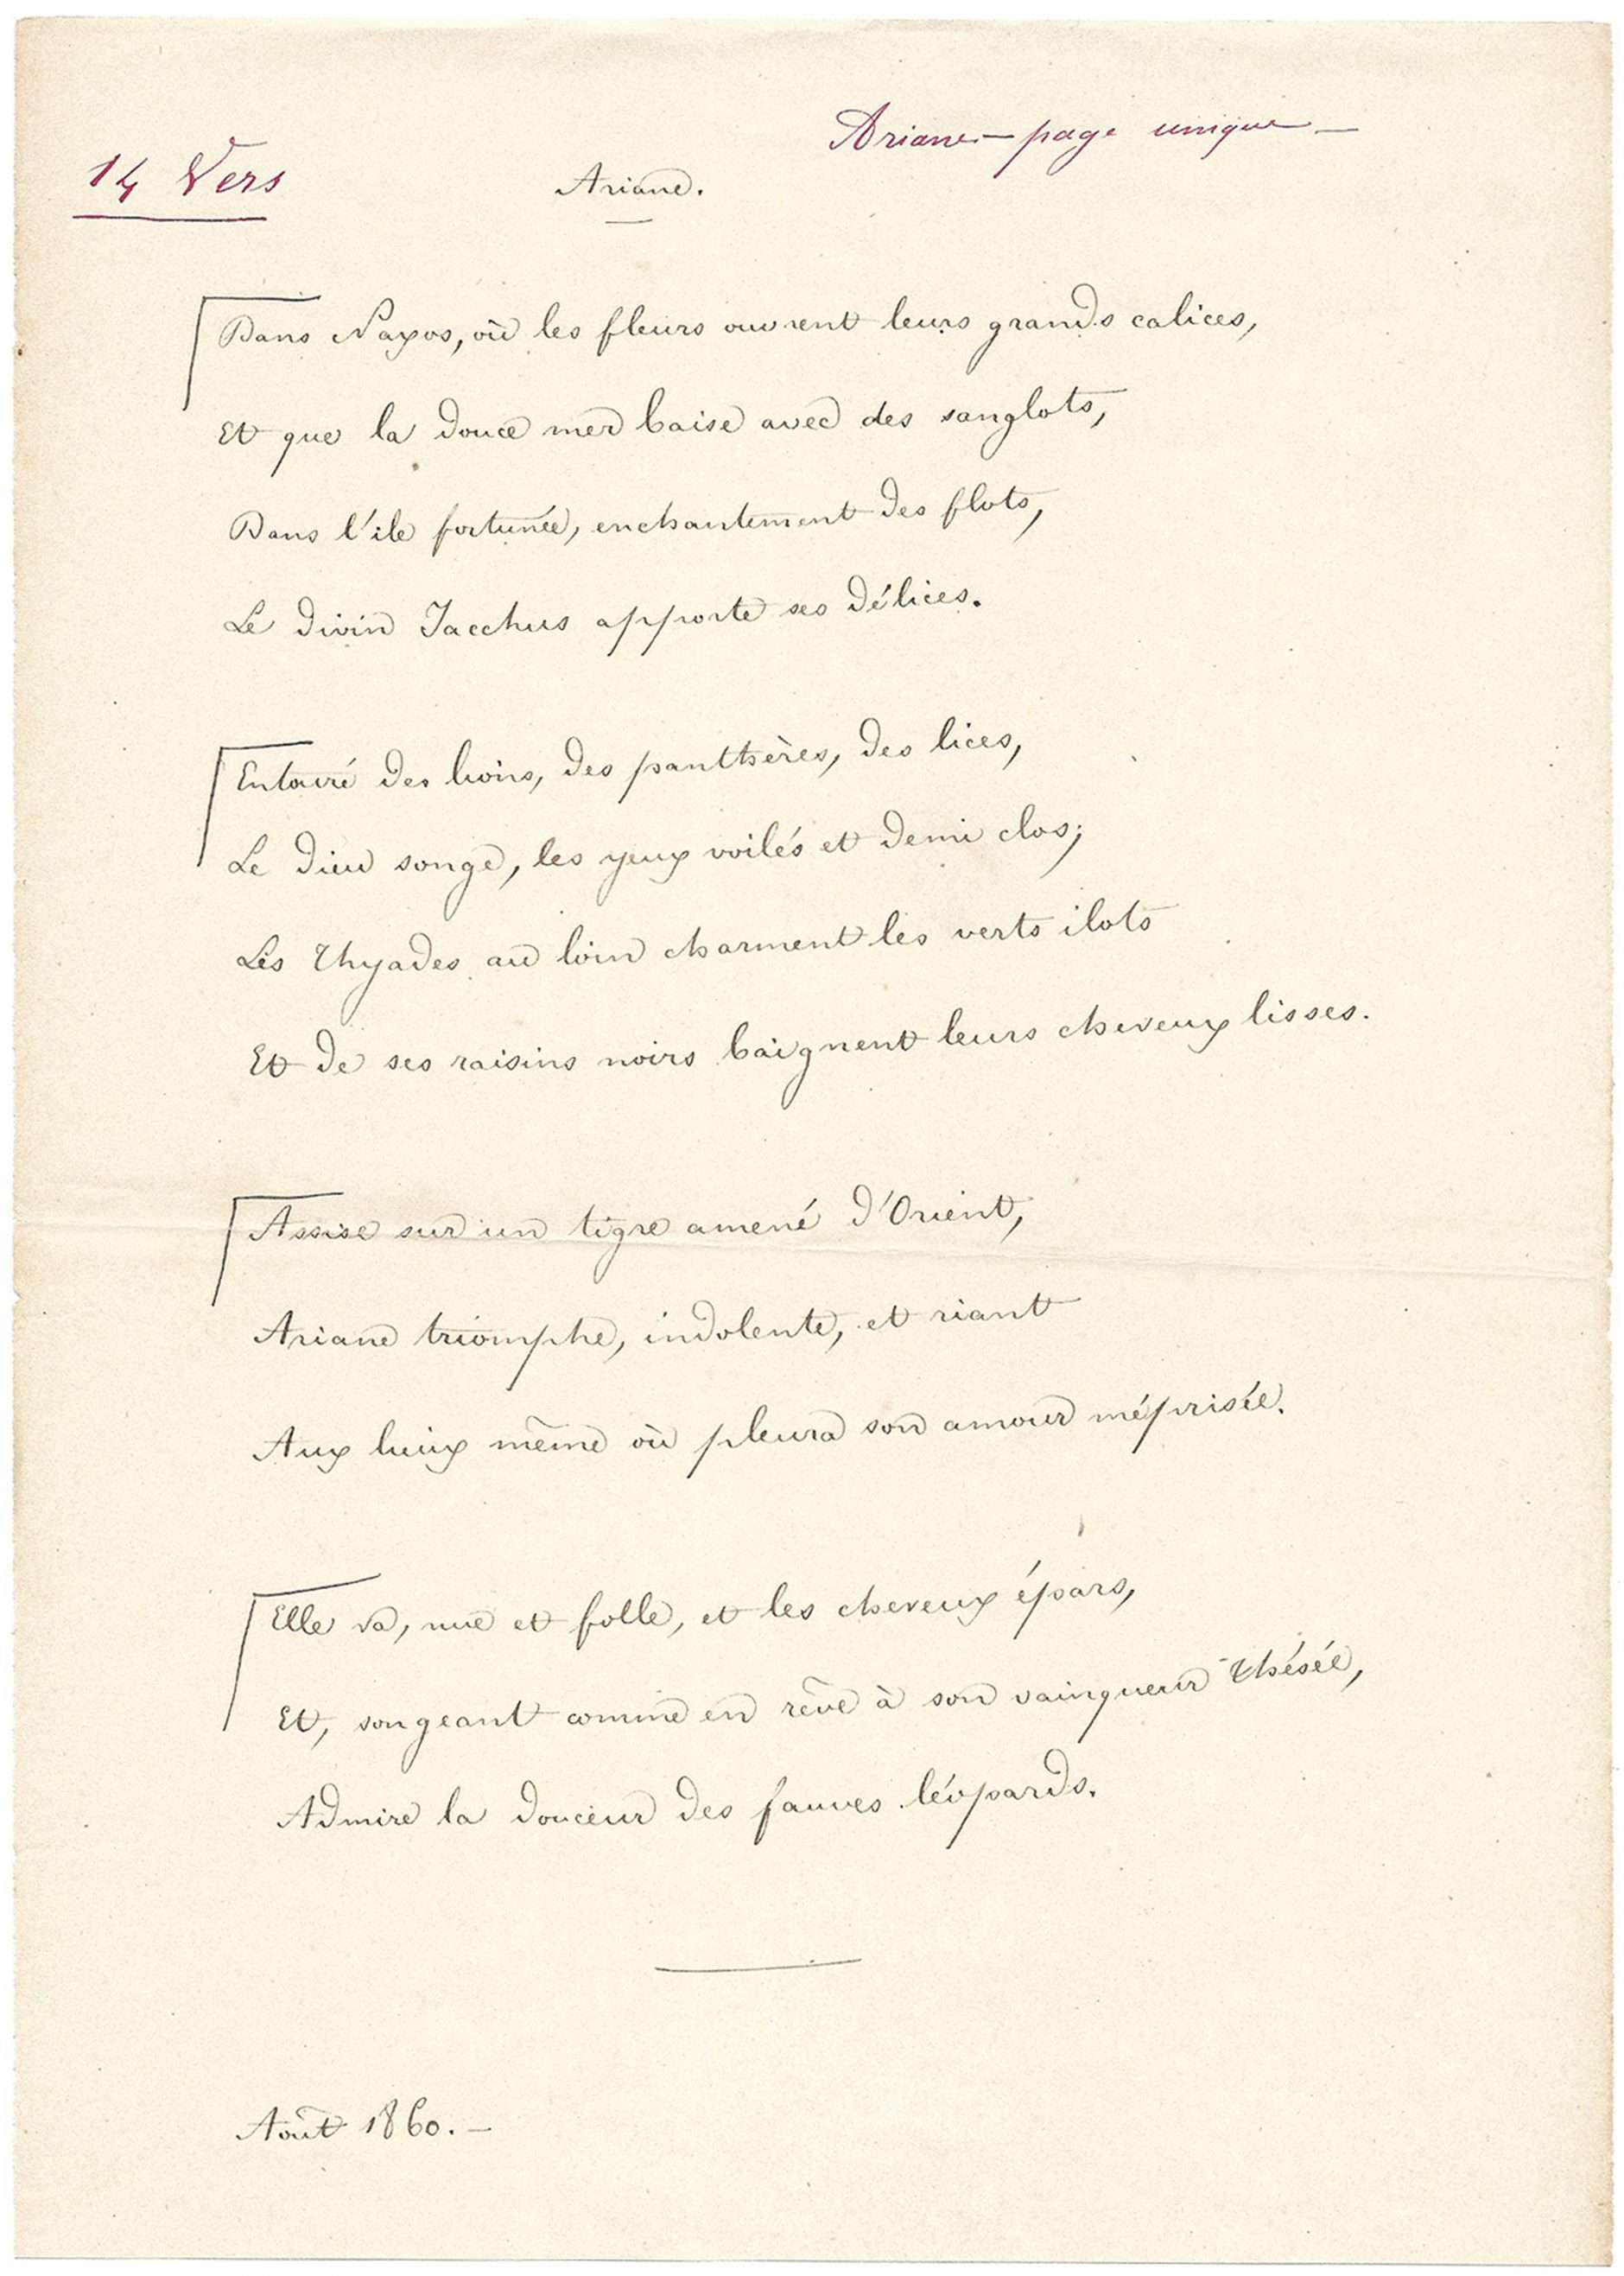 Ariane — page unique —
14 Vers
Ariane.
Dans Naxos, où les fleurs ouvrent leurs grands calices,
Et que la douce mer baise avec des sanglots,
Dans l'ile fortunée, enchantement des flots,
Le divin Iacchus apporte ses délices.
Entouré des lions, des panthères, des lices,
Le dieu songe, les yeux voilés et demi clos;
Les Thyades au loin charment les verts ilots
Et de ses raisins noirs baignent leurs cheveux lisses.
Assise sur un tigre amené d'Orient,
Ariane triomphe, indolente, et riant
Aux lieux même où pleura son amour méprisée.
Elle va, nue et folle, et les cheveux épars,
Et, songeant comme en rêve à son vainqueur Thésée,
Admire la douceur des fauves léopards.
Août 1860. —